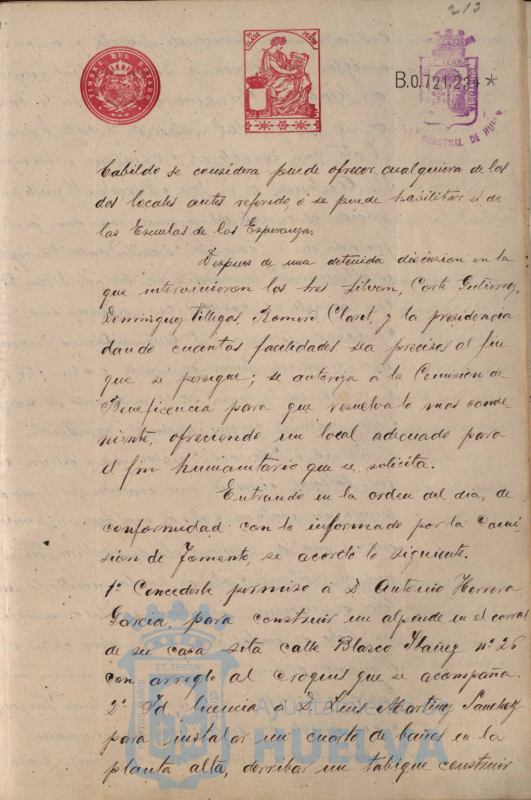 213
TIMBRE DEL ESTADO
B.0.721.234 *
Cabildo se considera puede ofrecer cualquiera de los
dos locales antes referido, ó se puede habilitar el de
las Escuelas de las Esperanza.
Despues de una detenida discusion en la
que intervinieron los tres Silvan, Corté Gutierrez,
Dominguez Villegas, Romero Claret, y la presidencia
dando cuantas facilidades sea precisas al fin
que se persigue; se autoriza á la Comision de
Beneficencia para que resuelva lo mas conve-
niente, ofreciendo un local adecuado para
el fin humanitario que se solicita.
Entrando en la orden del dia, de
conformidad con lo informado por la Comi
sion de Fomento, se acordó lo siguiente.
1º Concederle permiso á D. Antonio Herrera
Garcia, para construir un alpende en el corral
de su casa sita calle Blasco Ibañez nº 26
con arreglo al croquis que se acompaña.
2º Id licencia á D. Luis Martinez Sanchez
para instalar un cuarto de baños en la
planta alta, derribar un tabique construir
ET TERRA
Ayuntamiento de
HUELVA